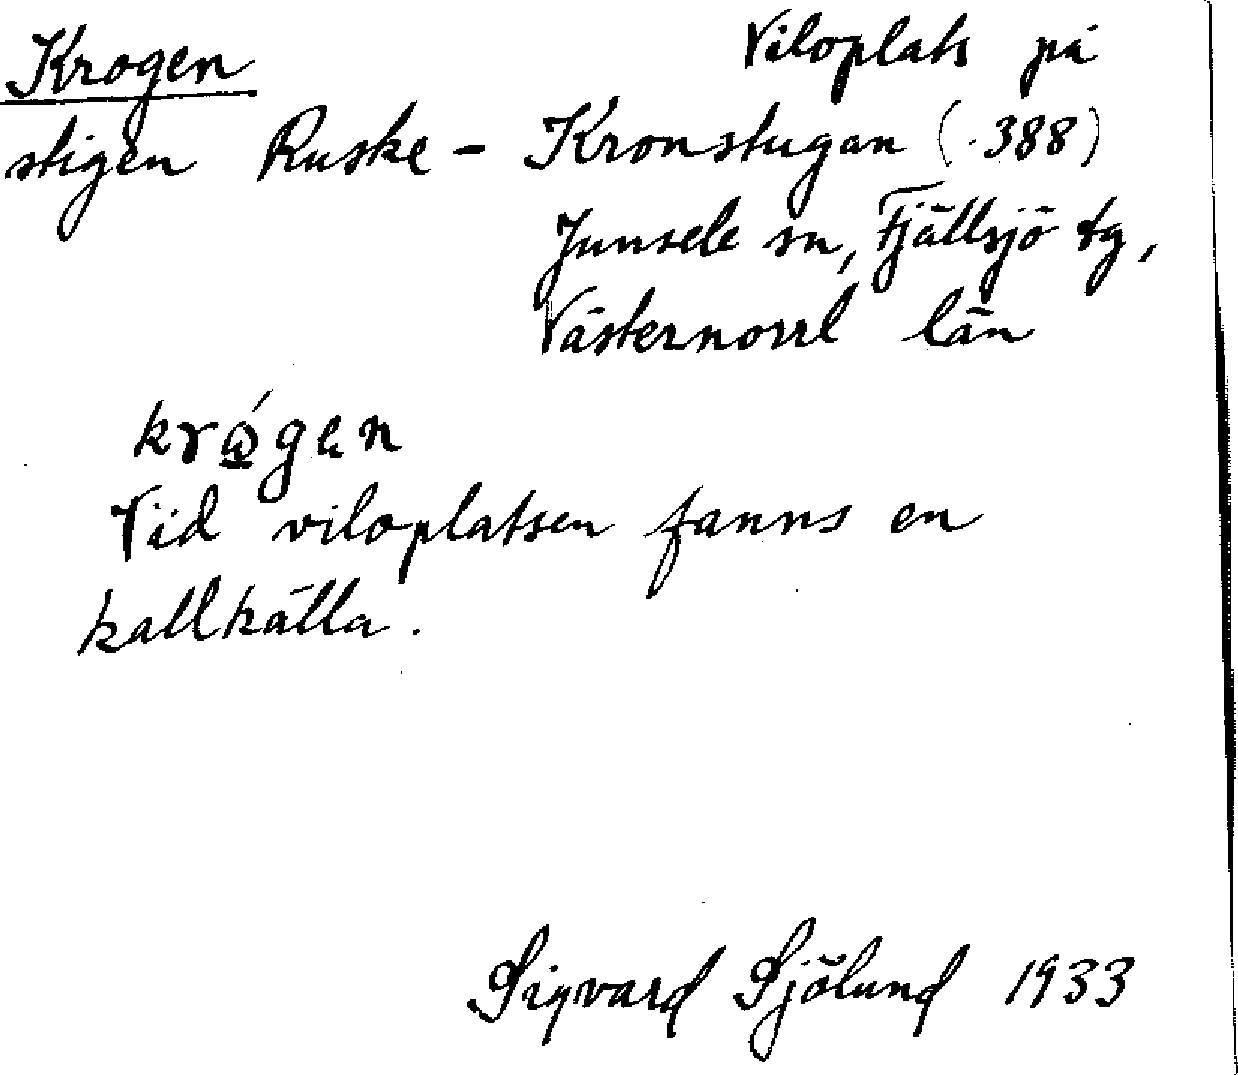 Krogen Viloplats på
stigen Ruske - Kronstugan (.388)
Junsele sn, Fjällsjö tg,
Västernorrl län
Vid viloplatsen fanns en
kallkälla.
Sigvard Sjölund 1933